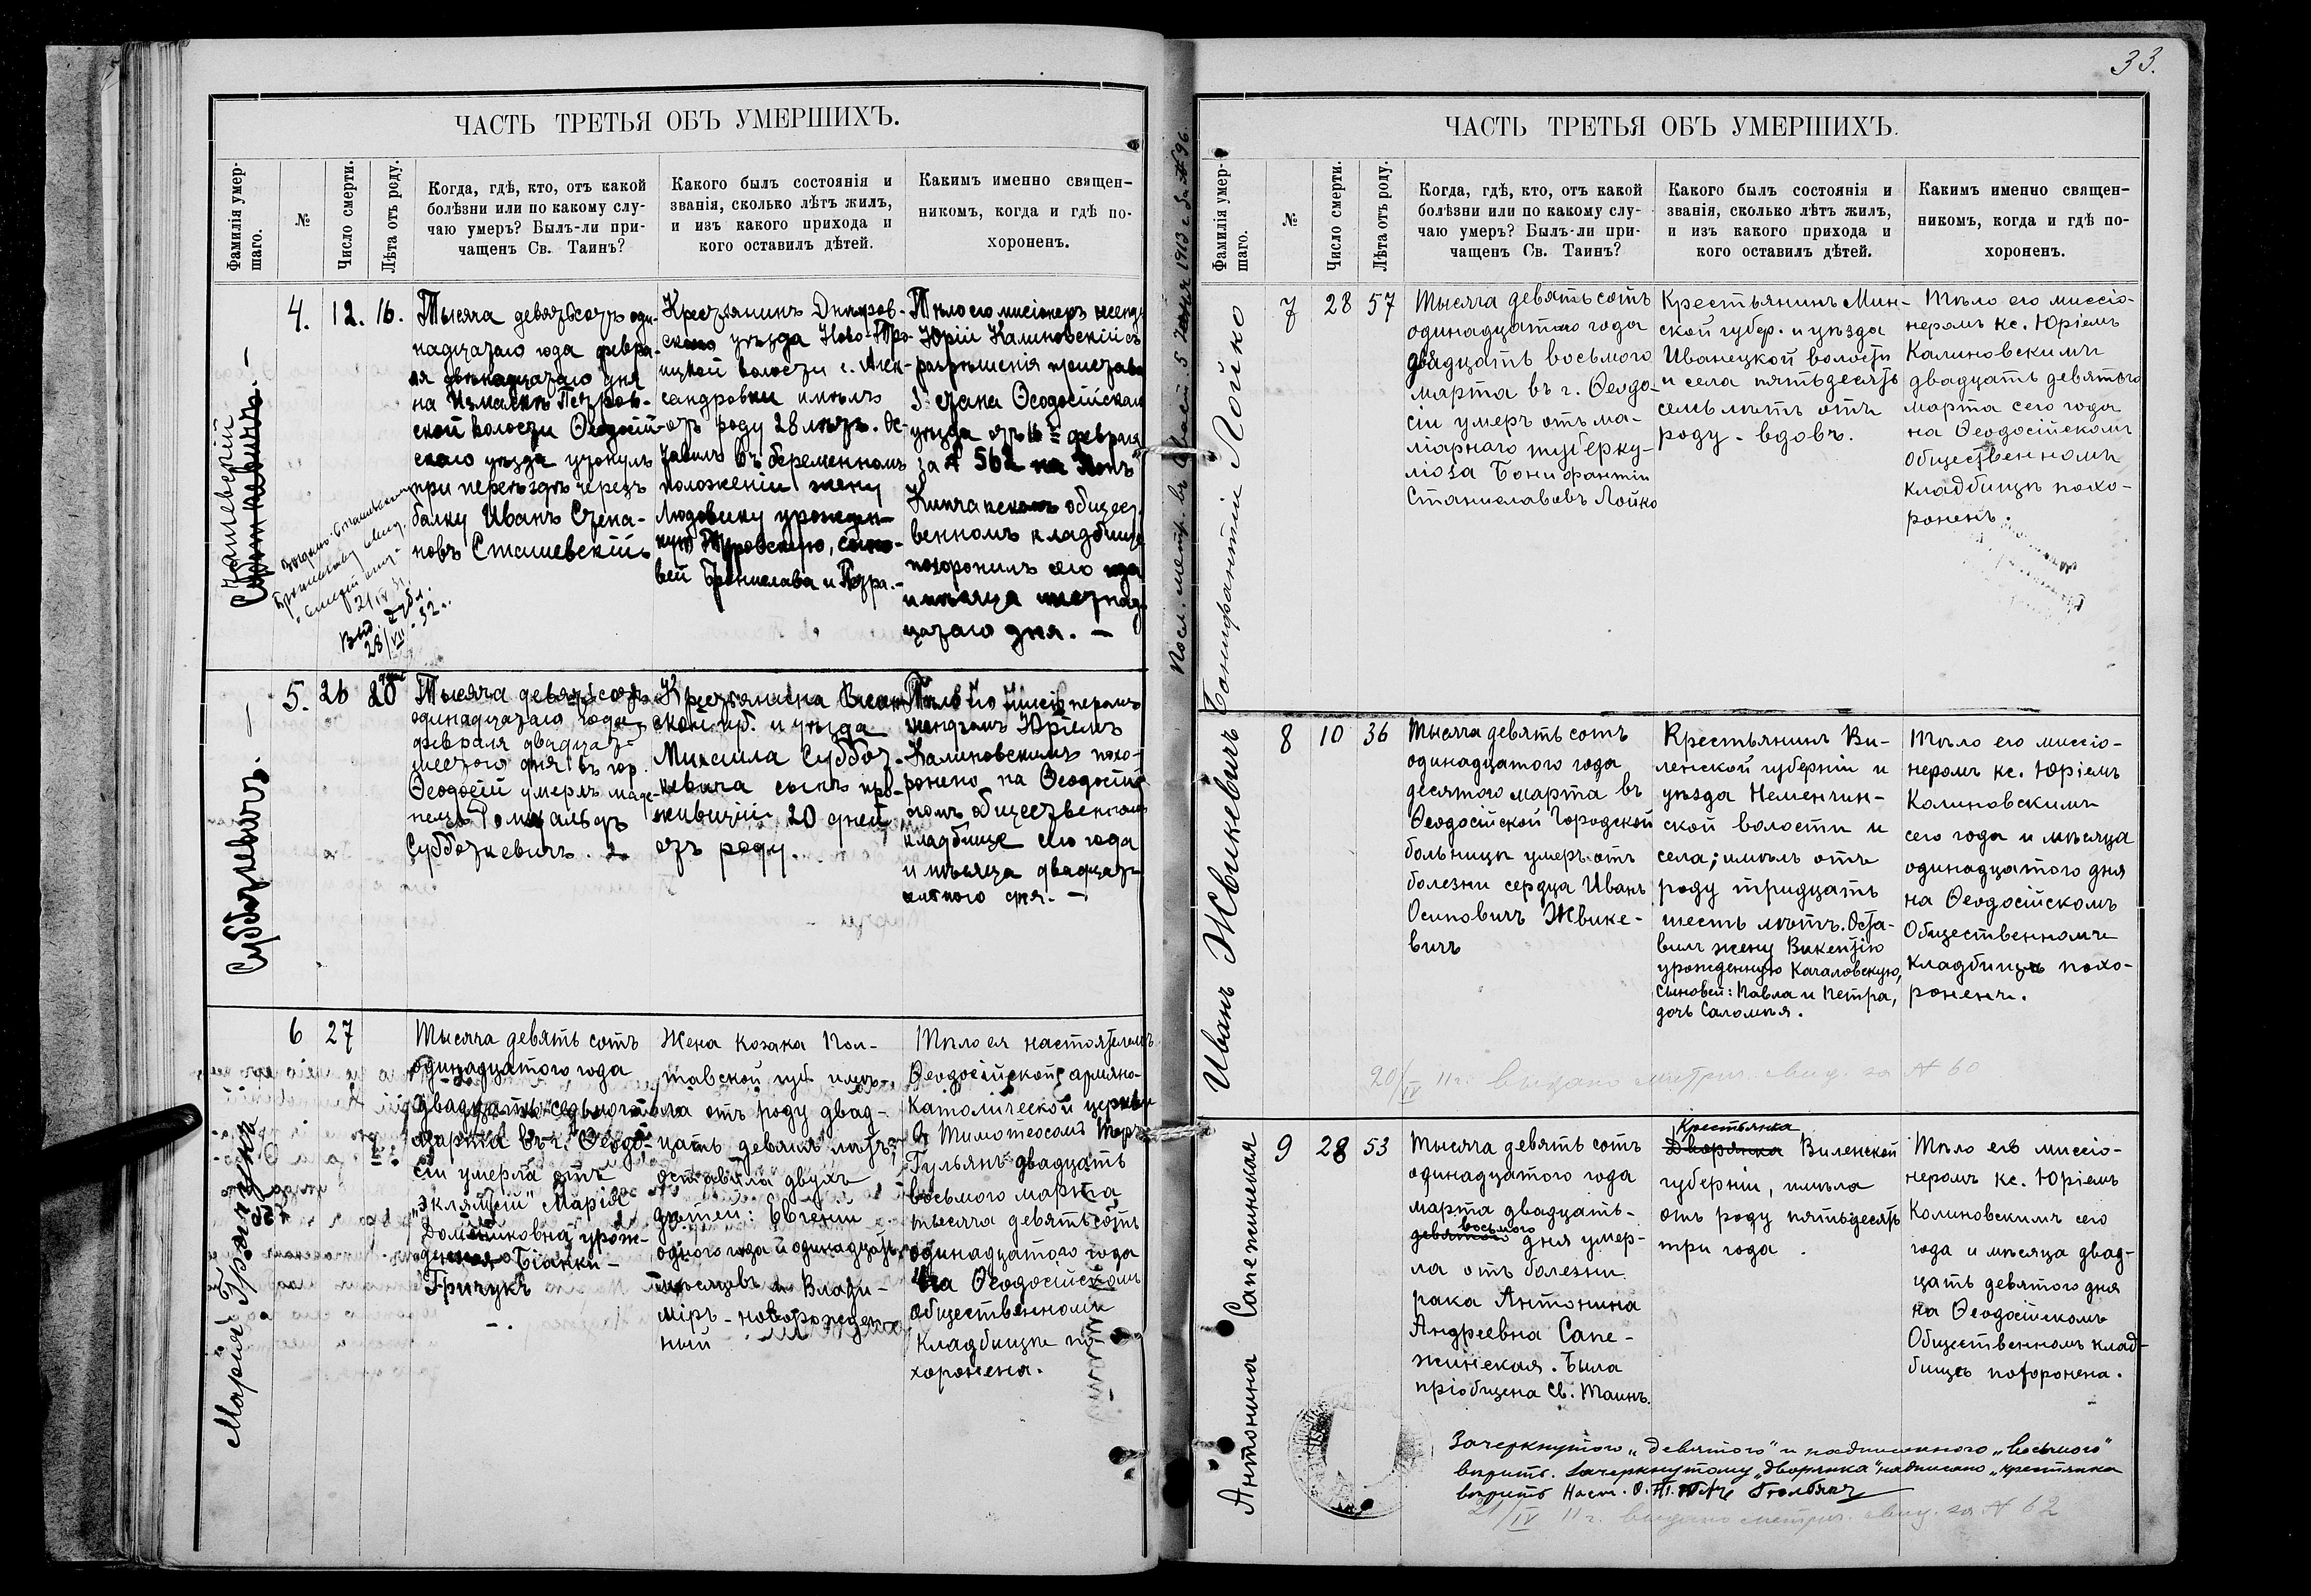 ЧАСТЬ ТРЕТЬЯ ОБЪ УМЕРШИХЪ.
Фамилія умер-
шаго.
№
Число смерти.
Лѣта отъ роду.
Когда, гдѣ, кто, отъ какой
болѣзни или по какому слу-
чаю умеръ? Былъ-ли при-
чащенъ Св. Таинъ?
Какого былъ состоянія и
званія, сколько лѣтъ жилъ,
и изъ какого прихода и
кого оставилъ дѣтей.
Какимъ именно священ-
никомъ, когда и гдѣ по-
хороненъ.
4.
12.
16.
Тысяча девятьсотъ оди-
надцатаго года февра-
ля двѣнадцатаго дня
Петров-
ской волости Ѳеодосій-
скаго уѣзда утонулъ
при переѣздѣ черезъ
балку Иванъ Степа-
новъ Сташевскій
Крестьянинъ Днѣпров-
скаго уѣзда Ново-Тро-
ицкой волости с. Алек-
сандровки имѣлъ
отъ роду 28 лѣтъ. Ос-
тавилъ въ беременномъ
положеніи жену
Людовику урожден-
ную сыно-
вей Бронислава и Петра.-
Тѣло его миссіонеръ ксендзъ
Юрій Калиновскій съ
разрѣшенія пристава
3 стана Ѳеодосійскаго
уѣзда отъ 16 февраля
за № 562 на
общест-
венномъ кладбищѣ
похоронилъ сего года
и мѣсяца шестнад-
цатаго дня. —
28/VII
Субботкевичъ. —
5.
26
20 дней
Тысяча девятьсотъ
одинадцатаго года
февраля двадцать
шестого дня въ гор.
Ѳеодосіи умеръ младе-
нецъ Ромуальдъ
Субботкевичъ.
Крестьянина Вилен-
ской губ. и уѣзда
Михаила Суббот-
кевича сынъ про-
жившій 20 дней
отъ роду.
Тѣло его миссіонеромъ
ксендзомъ Юріемъ
Калиновскимъ похо-
ронено на Ѳеодосій-
скомъ общественномъ
кладбищѣ сего года
и мѣсяца двадцать
дня. —
Марія Гричукъ
6
27
Тысяча девять сотъ
одинадцатого года
двадцать седьмого
марта въ г. Ѳеодо-
сіи умерла отъ
„эклямсіи" Марія
Доминиковна урож-
денная Біанки-
Гричукъ
Жена козака Пол-
тавской губ. имѣ-
ла отъ роду двад-
цать девять лѣтъ,
оставила двухъ
дѣтей: Евгеній
одного года и одинадцать
мѣсяцевъ и Влади-
міръ - новорожден-
ный
Тѣло ея настоятелемъ
Ѳеодосійской армяно-
католической церкви
о. Тимотеосомъ Теръ
Гульянъ двадцать
восьмого марта
тысяча девять сотъ
одинадцатого года
на Ѳеодосійскомъ
общественномъ
кладбищѣ по-
хоронена.
33.
ЧАСТЬ ТРЕТЬЯ ОБЪ УМЕРШИХЪ.
Фамилія умер-
шаго.
№
Число смерти.
Лѣта отъ роду.
Когда, гдѣ, кто, отъ какой
болѣзни или по какому слу-
чаю умеръ? Былъ-ли при-
чащенъ Св. Таинъ?
Какого былъ состоянія и
званія, сколько лѣтъ жилъ,
и изъ какого прихода и
кого оставилъ дѣтей.
Какимъ именно священ-
никомъ, когда и гдѣ по-
хороненъ.
Бонифантій Лойко
7
28
57
Тысяча девять сотъ
одинадцатого года
двадцать восьмого
марта въ г. Ѳеодо-
сіи умеръ отъ ма-
ліарнаго туберку-
лоза Бонифантій
Станиславовъ Лойко
Крестьянинъ Мин-
ской губер. и уѣзда
Иванецкой волости
и села пятьдесятъ
семь лѣтъ отъ
роду - вдовъ.
Тѣло его миссіо-
неромъ кс. Юріемъ
Калиновскимъ
двадцать девятого
марта сего года
на Ѳеодосійскомъ
общественномъ
кладбищѣ похо-
роненъ.
Иванъ Жвикевичъ
8
10
36
Тысяча девять сотъ
одинадцатого года
десятого марта въ
Ѳеодосійской городской
больницѣ умеръ отъ
болезни сердца Иванъ
Осиповичъ Жвике-
вичъ
Крестьянинъ Ви-
ленской губерніи и
уѣзда Неменчин-
ской волости и
села; имѣлъ отъ
роду тридцать
шесть лѣтъ. Оста-
вилъ жену Викентію
урожденную Качаловскую,
сыновей: Павла и Петра,
дочь Саломѣя.
Тѣло его миссіо-
неромъ кс. Юріемъ
Калиновскимъ
сего года и мѣсяца
одинадцатого дня
на Ѳеодосійскомъ
Общественномъ
кладбищѣ похо-
роненъ.
20/IV 11 г. выдано метрич. свид. за № 60
Антонина Сапежинская
9
28
53
Тысяча девять сотъ
одинадцатого года
марта двадцать-
восьмого
девятого дня умер-
ла отъ болезни
рака Антонина
Андреевна Сапе-
жинская. Была
пріобщена Св. Таинъ.
Крестьянка
Дворянка Виленской
губерніи, имѣла
отъ роду пятьдесятъ
три года.
Тѣло ея миссіо-
неромъ кс. Юріемъ
Калиновскимъ сего
года и мѣсяца двад-
цать девятого дня
на Ѳеодосійскомъ
Общественномъ клад-
бищѣ похоронена.
Зачеркнутого „девятого" и надписанного „восьмого"
вѣрить. Зачеркнутому „дворянка" надписано „крестянка
вѣрить Наст.
21/IV 11 г. выдано метрич. свид. за № 62